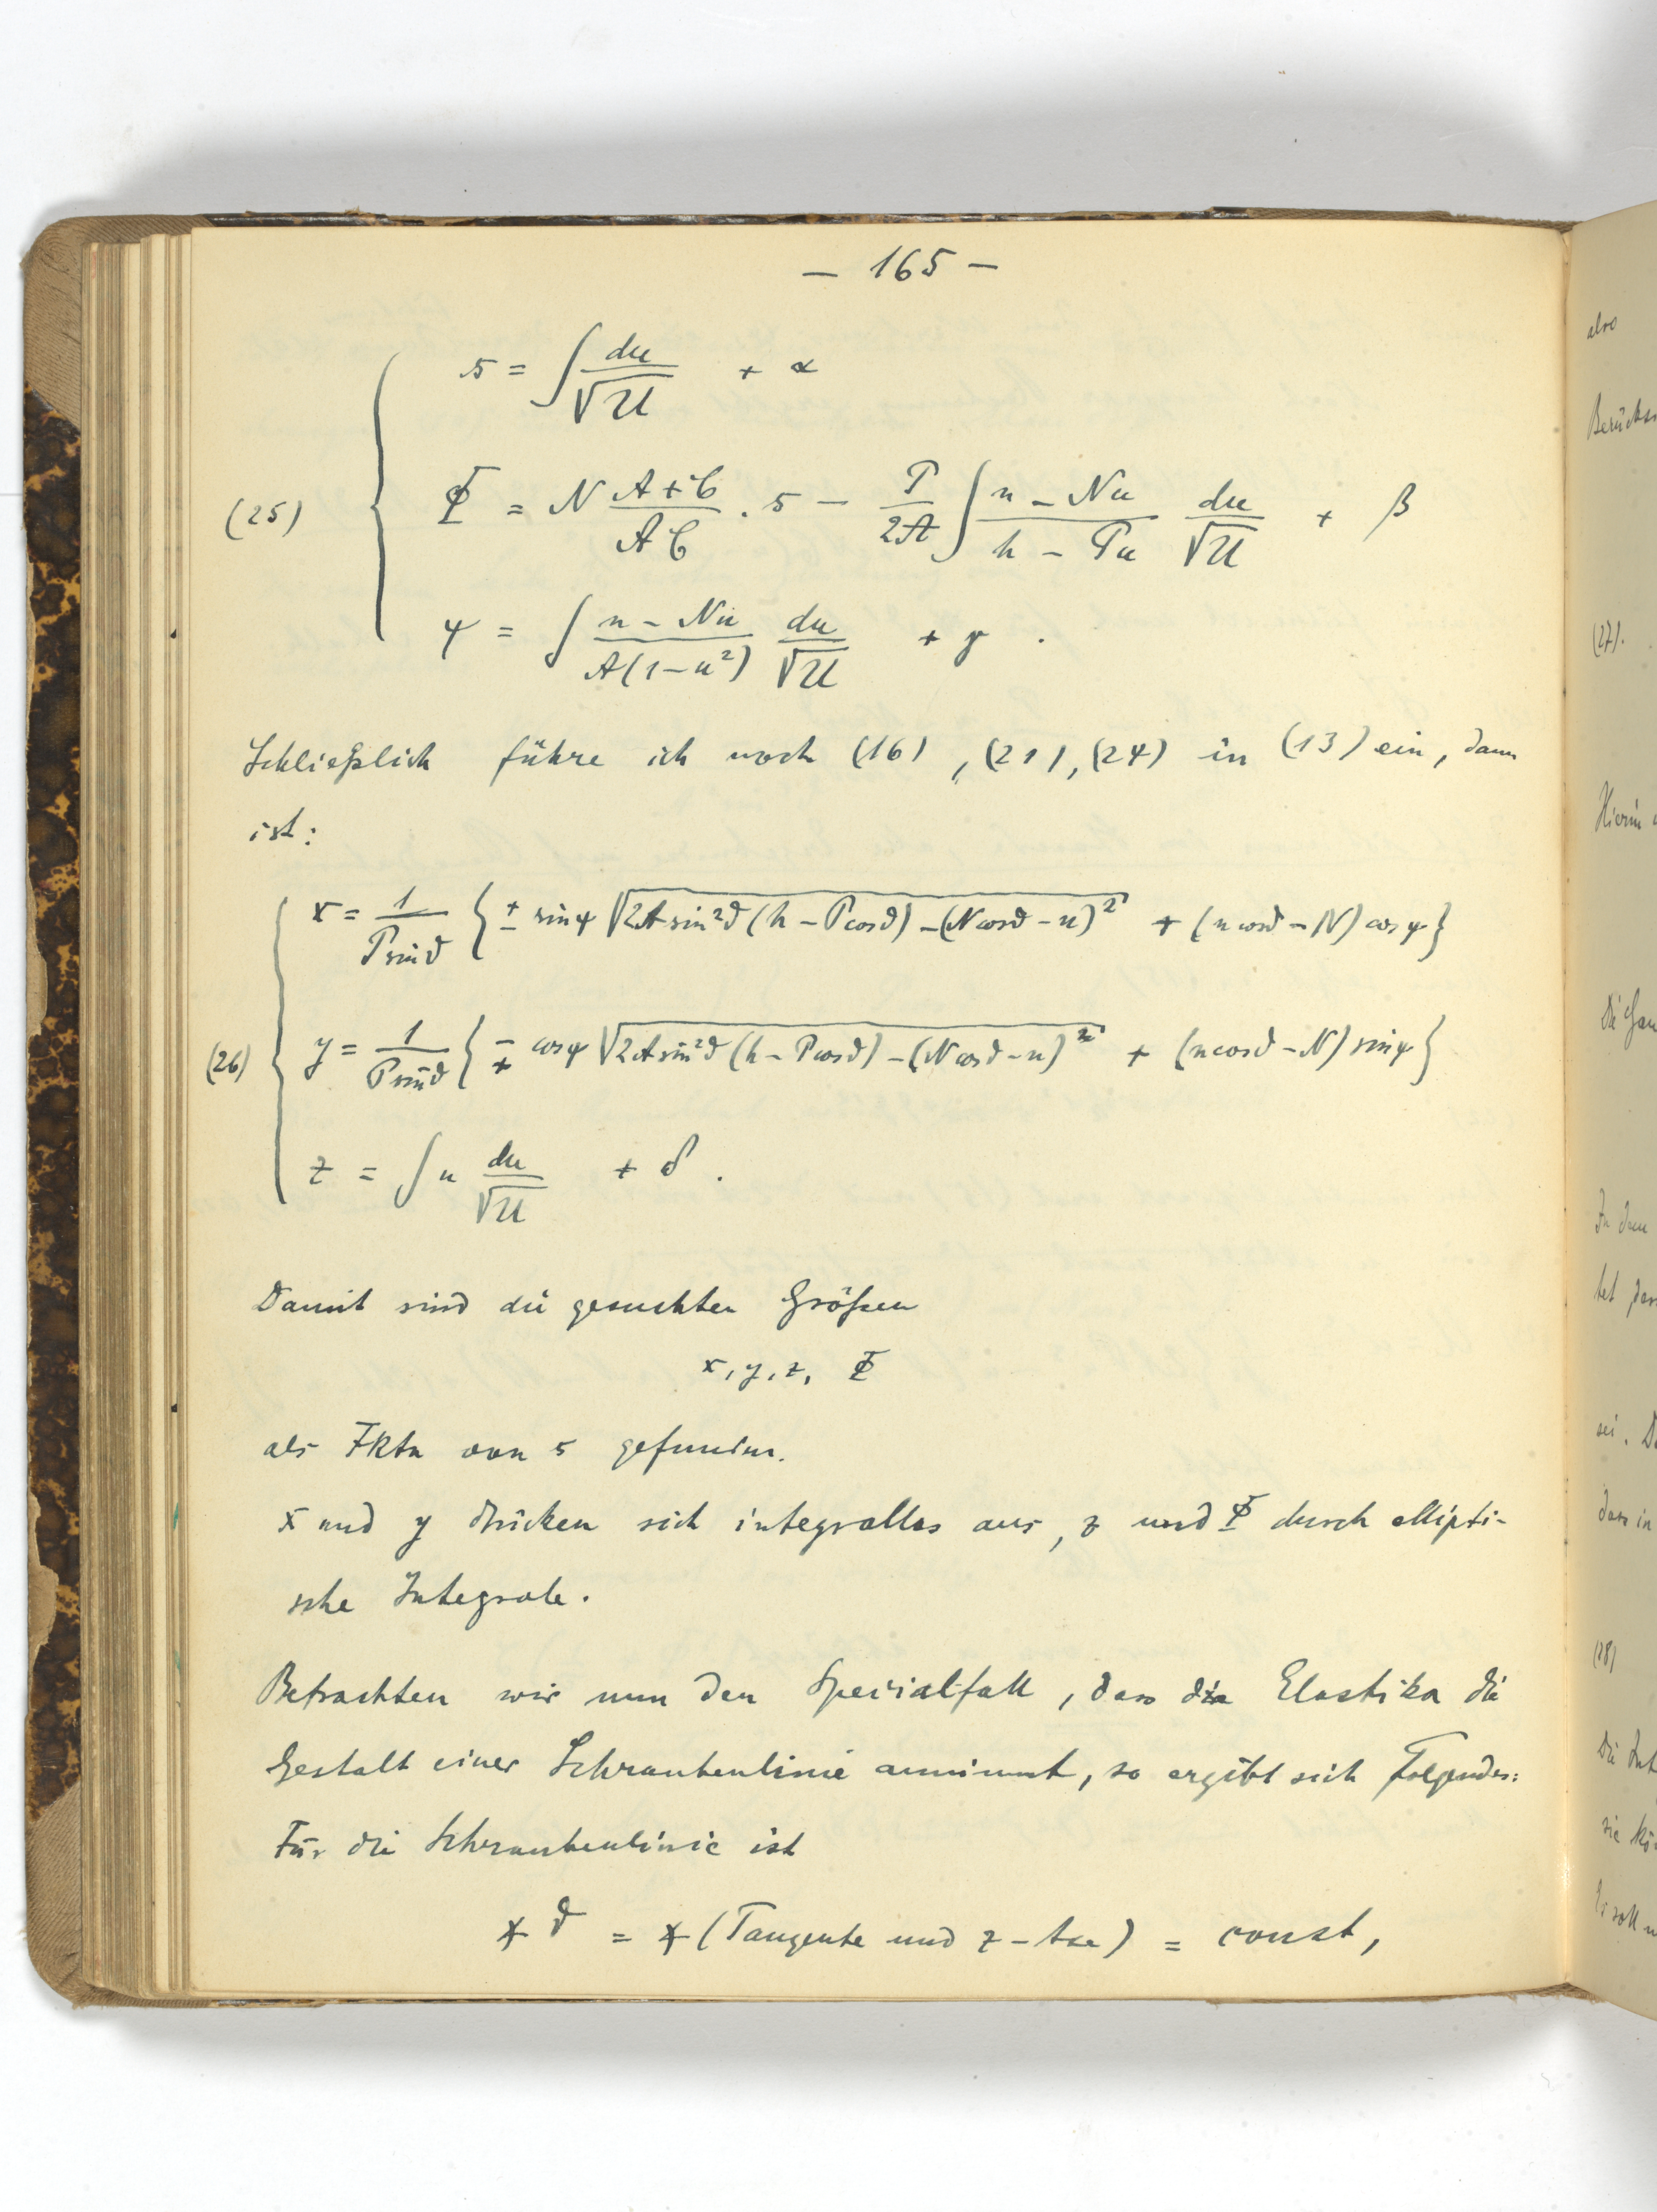 — 165 —
s = ∫ du/√U + α
(25) Φ = N (A+C)/(AC) · s − P/(2A) ∫ (n − Nu)/(h − Pu) du/√U + β
ψ = ∫ (n − Nu)/(A(1−u²)) du/√U + γ .
Schließlich führe ich noch (16), (21), (24) in (13) ein, dann
ist:
x = 1/(P sin ϑ) { ± sin ψ √(2A sin²ϑ (h − P cos ϑ) − (N cos ϑ − n)²) + (n cos ϑ − N) cos ψ }
(26) y = 1/(P sin ϑ) { ∓ cos ψ √(2A sin²ϑ (h − P cos ϑ) − (N cos ϑ − n)²) + (n cos ϑ − N) sin ψ }
z = ∫ u du/√U + δ .
Damit sind die gesuchten Größen
x, y, z, Φ
als Fktn von s gefunden.
x und y drücken sich integrallos aus, z und Φ durch ellipti-
sche Integrale.
Betrachten wir nun den Spezialfall, dass die Elastika die
Gestalt einer Schraubenlinie annimmt, so ergibt sich Folgendes:
Für die Schraubenlinie ist
∢ ϑ = ∢ (Tangente und z - Axe) = const,
also
Berücks
(27).
Hierin
In dem
tet, dass
sei. D
dass in
(28)
Die Int
sie kö
Es soll